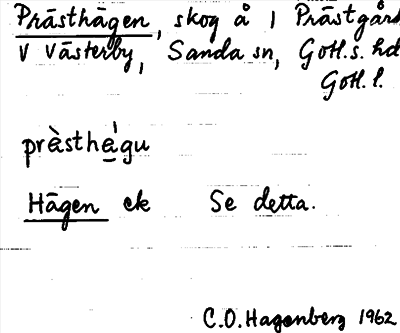 Prästhägen, skog å 1 Prästgård
V Västerby, Sanda sn, Gotl. s. hd
Gotl. l.
prä̀sthä́gu
Hägen ek Se detta.
C.O. Hagenberg 1962